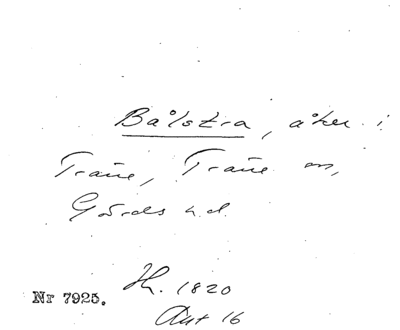 Bålstra, åker i
Träne, Träne sn,
Gärds hd.
Nr 7925.
H. 1820
Akt 16